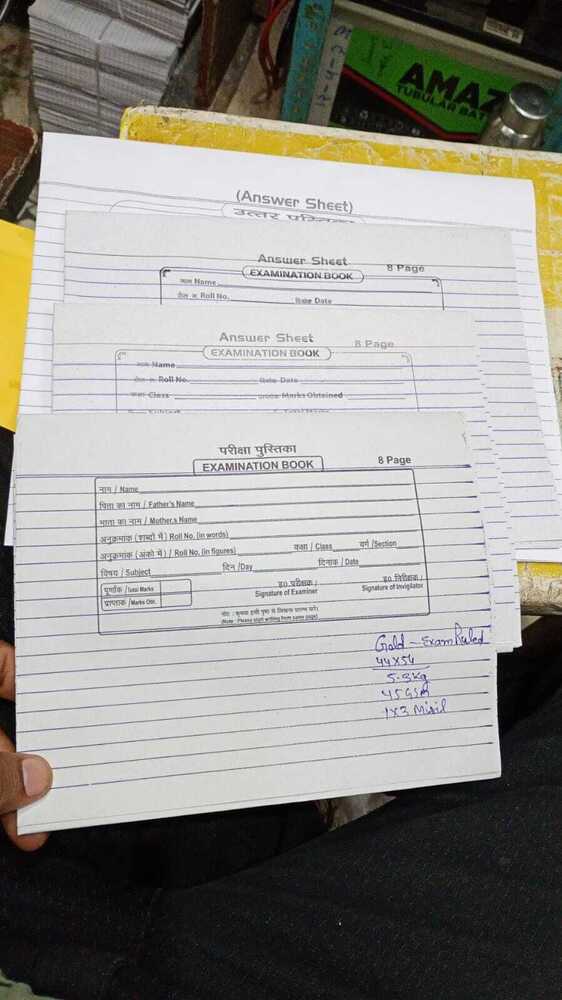 AMAZ
TUBULAR BAT
(Answer Sheet)
उत्तर पुस्तिका
Answer Sheet
8 Page
EXAMINATION BOOK
नाम Name
रोल नं. Roll No. दिनांक Date
Answer Sheet
8 Page
EXAMINATION BOOK
नाम Name
रोल नं. Roll No. दिनांक Date
कक्षा Class प्राप्तांक Marks Obtained
परीक्षा पुस्तिका
EXAMINATION BOOK
8 Page
नाम / Name
पिता का नाम / Father's Name
माता का नाम / Mother,s Name
अनुक्रमांक (शब्दो में) Roll No. (in words)
अनुक्रमांक (अंको में) / Roll No. (in figures) कक्षा / Class वर्ग /Section
विषय / Subject दिन /Day दिनांक / Date
पूर्णांक / Total Marks
प्राप्तांक /Marks Obt.
ह० परीक्षक /
Signature of Examiner
ह० निरीक्षक /
Signature of Invigilator
नोट : कृपया इसी पृष्ठ से लिखना प्रारम्भ करें।
(Note : Please start writing from same page)
Gold - Exam Ruled
44x54
5.3kg
45 GSM
1x3 Misil